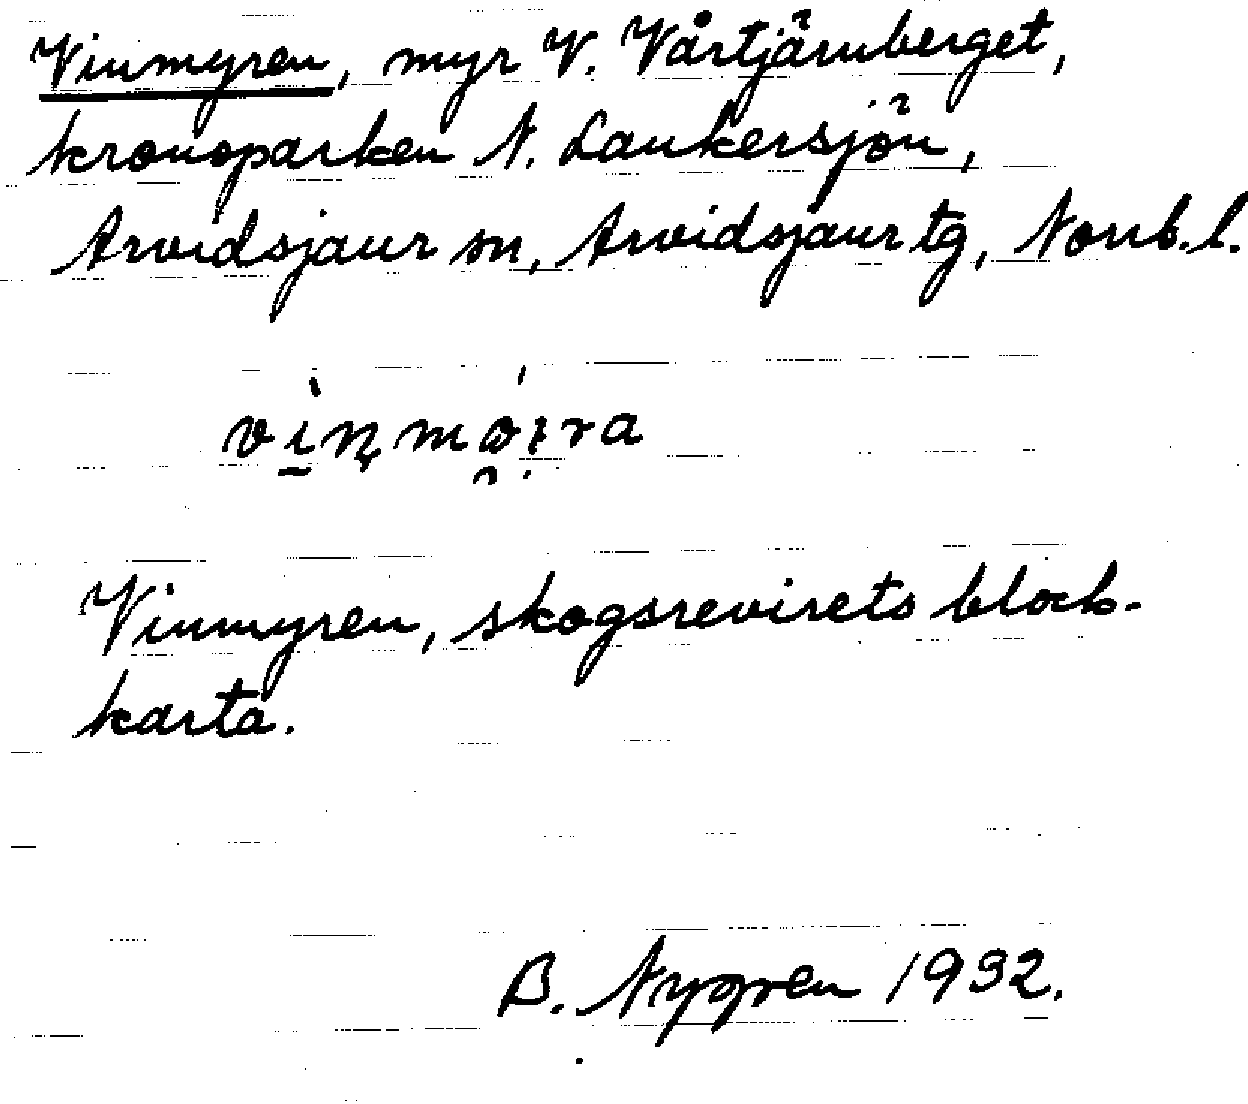 Vinmyren, myr V. Vårtjärnberget,
kronoparken N. Lankersjön,
Arvidsjaur sn, Arvidsjaur tg, Norrb. l.
Vinmyren, skogsrevirets block-
karta.
B. Nygren 1932.